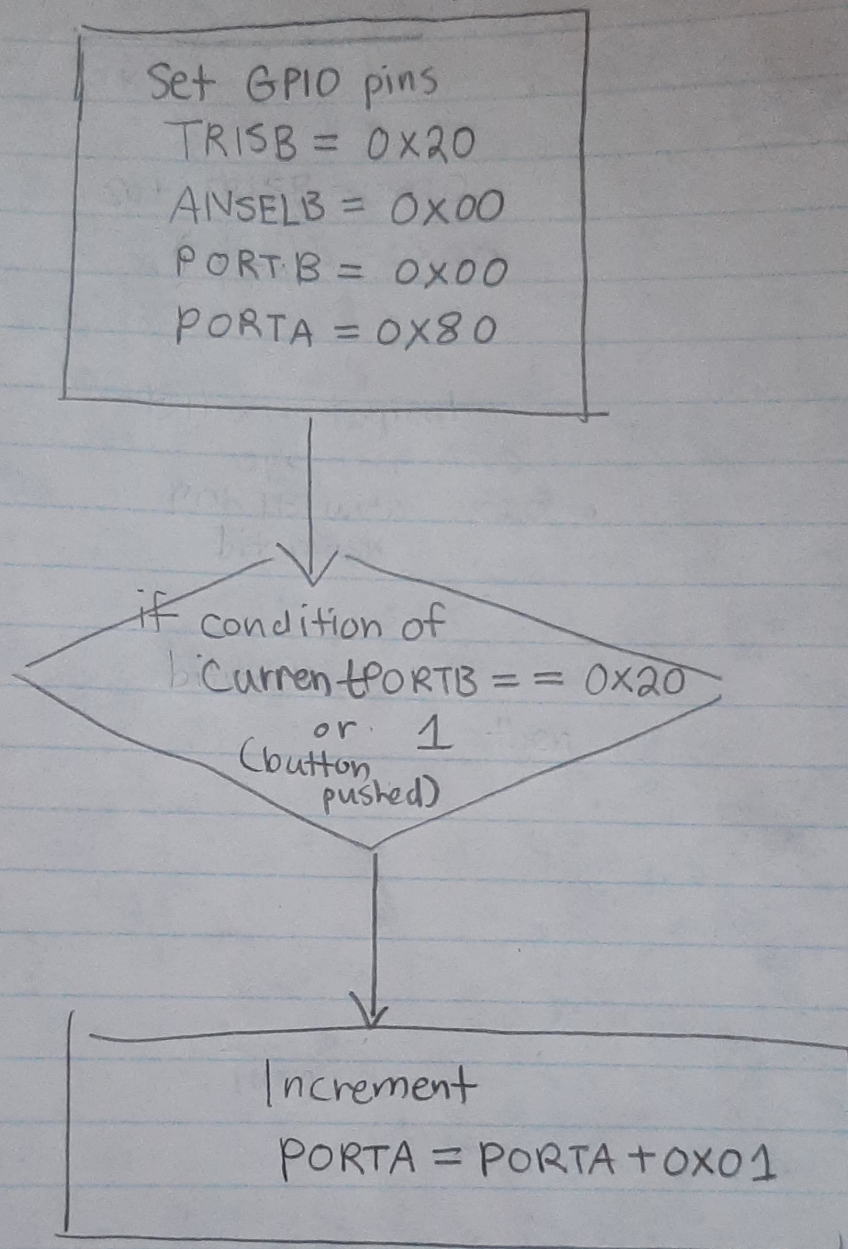 Set GPIO pins
TRISB = 0X20
ANSELB = 0X00
PORTB = 0X00
PORTA = 0X80
if condition of
CurrentPORTB == 0X20
or 1
(button
pushed)
Increment
PORTA = PORTA + 0X01